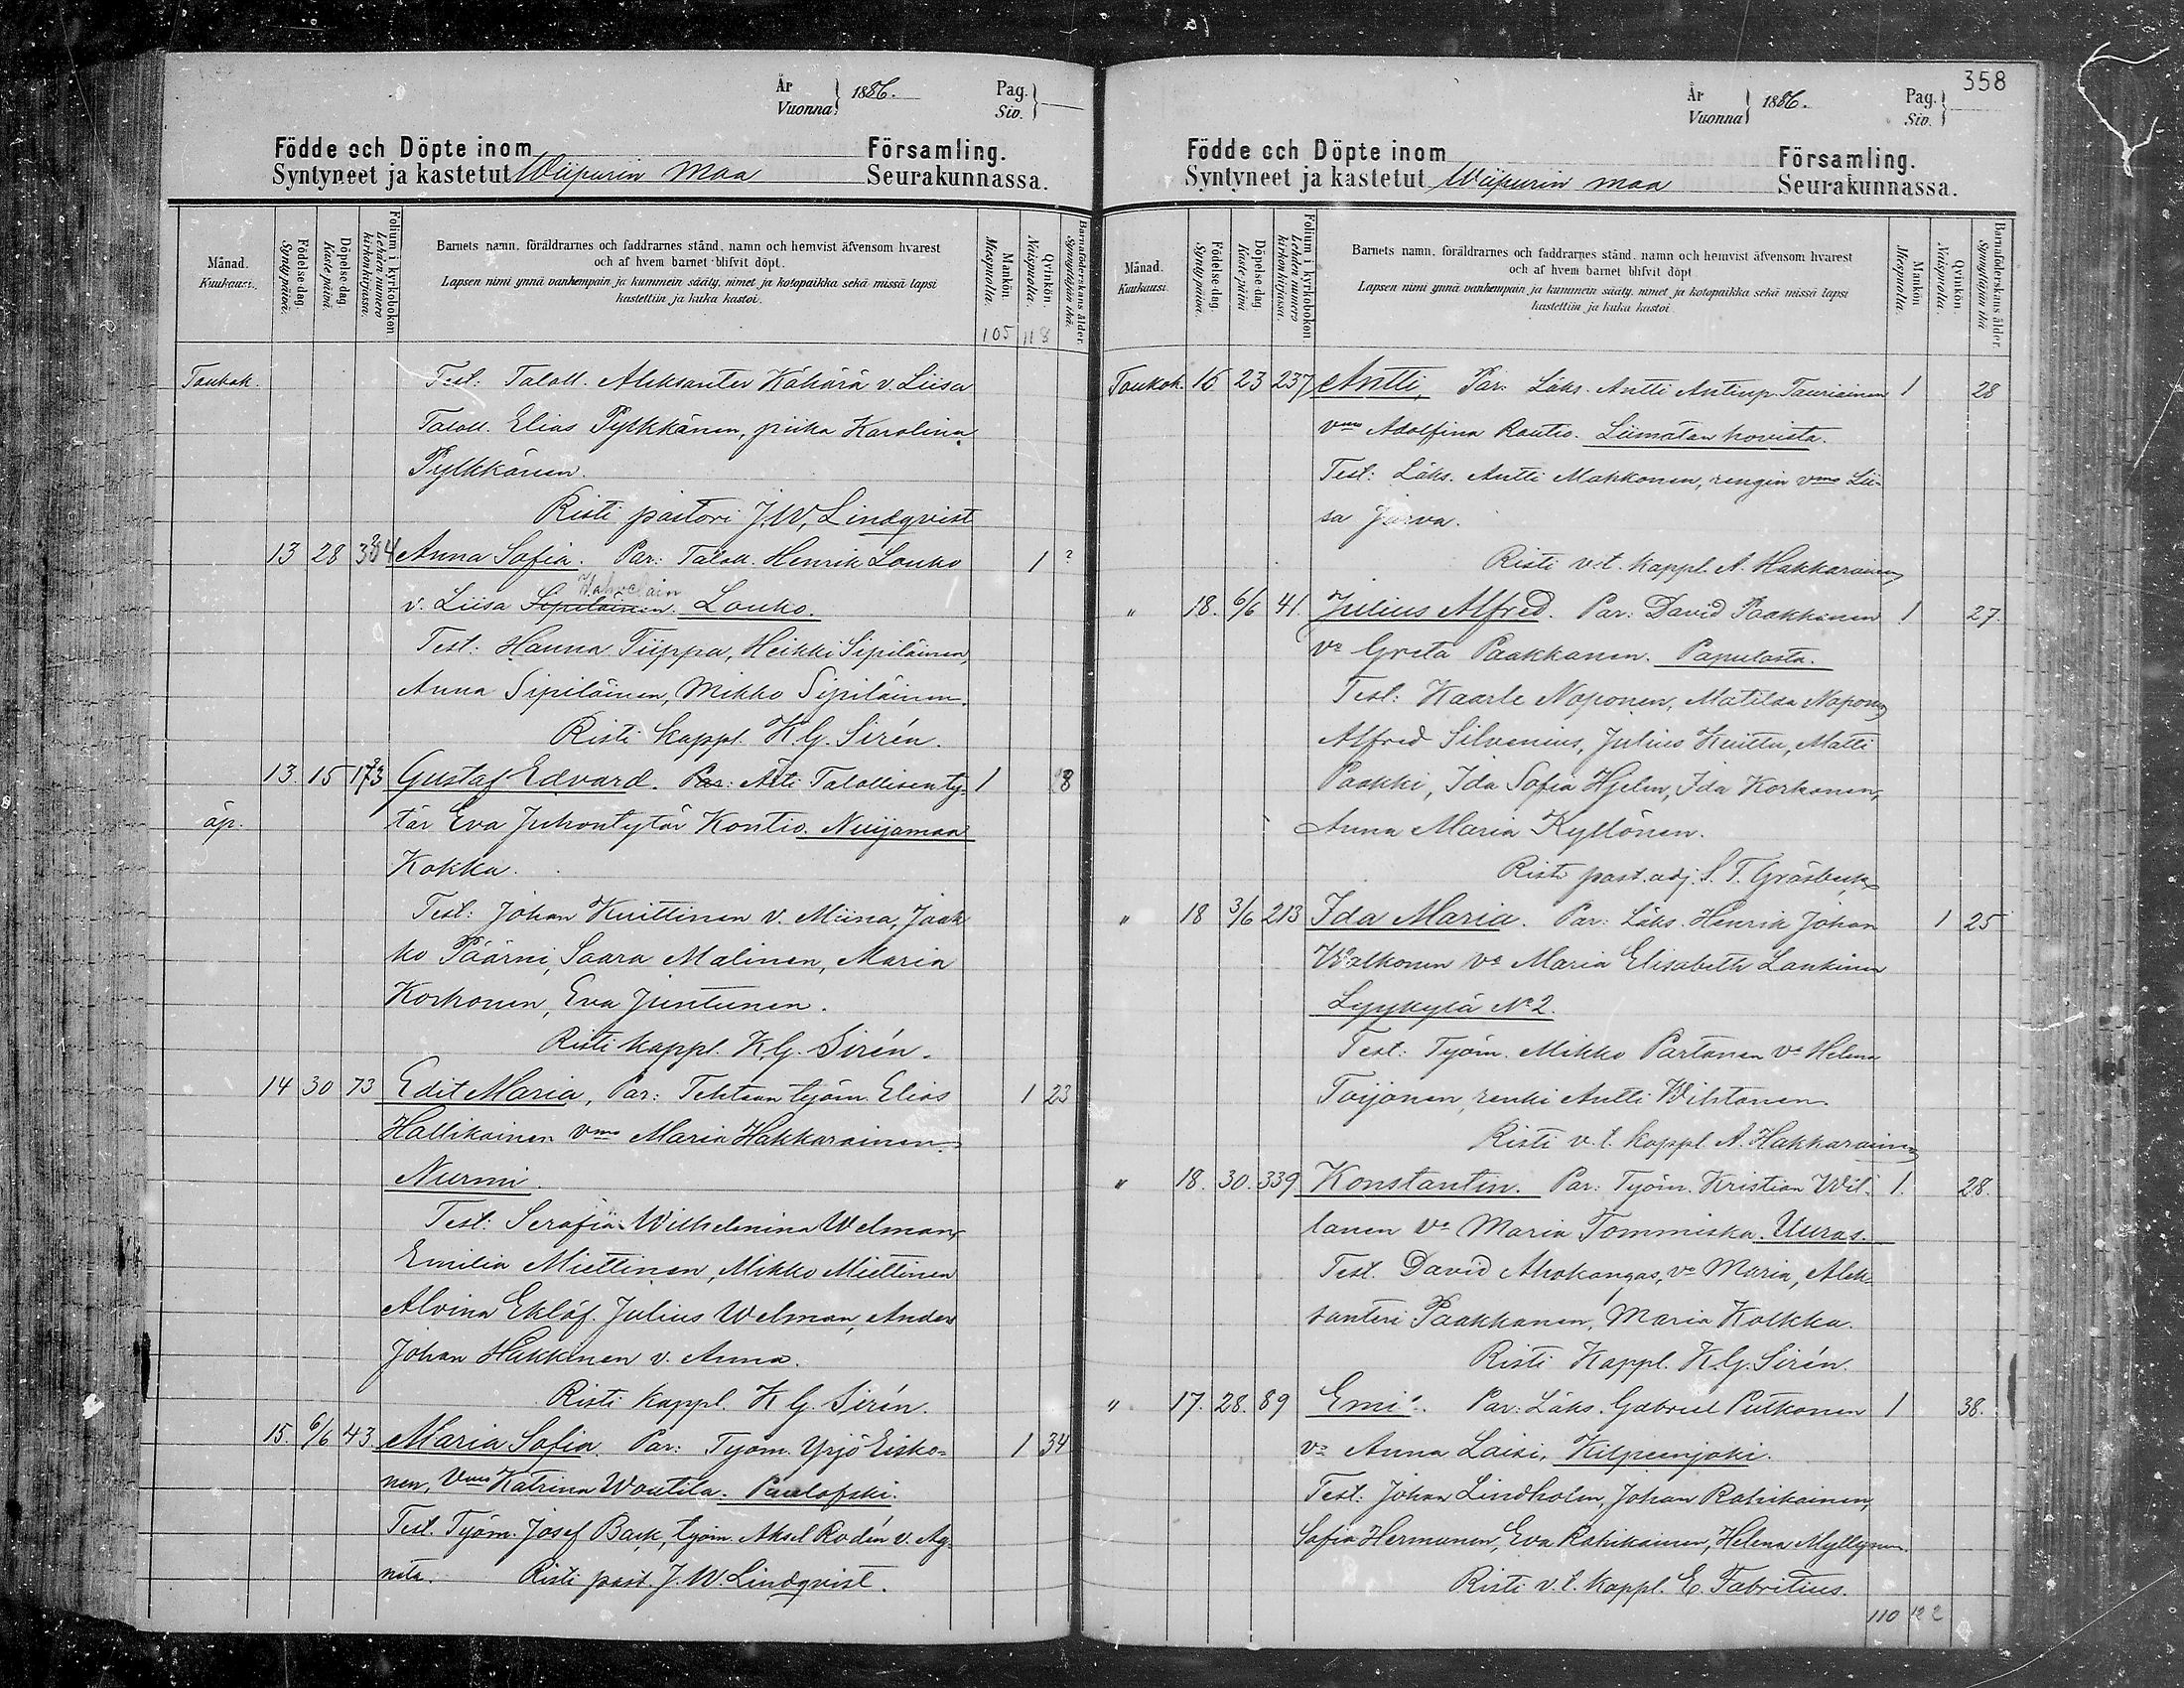 År
Vuonna } 1886.
Pag.
Siv. }
Födde och Döpte inom Församling.
Syntyneet ja kastetut Wiipurin Maa Seurakunnassa.
Månad.
Kuukausi.
Födelse-dag.
Syntypäivä.
Döpelse-dag.
Kastepäivä.
Folium i kyrkoboken.
Lehden numero kirkonkirjassa.
Barnets namn, föräldrarnes och faddrarnes stånd, namn och hemvist äfvensom hvarest
och af hvem barnet blifvit döpt.
Lapsen nimi ynnä vanhempain ja kummein sääty, nimet ja kotopaikka sekä missä lapsi
kastettiin ja kuka kastoi.
Mankön.
Miespuolia.
Qvinkön.
Naispuolia.
Barnaföderskans ålder.
Synnyttäjän ikä.
105 118
Toukok. Test: Taloll. Aleksanter Kähärä v. Liisa
Taloll. Elias Pylkkänen, piika Karolina
Pylkkänen.
Risti pastori J. W. Lindqvist
13 28 334 Anna Sofia. Par: Taloll. Henrik Louko 1 ?
Wahvelain
v. Liisa Sipiläinen. Louko.
Test: Hanna Tiippa, Heikki Sipiläinen,
Anna Sipiläinen, Mikko Sipiläinen.
Risti kappl. K. G. Sirén.
13. 15 173 Gustaf Edvard. Par: Äiti Talollisen ty- 1 8
äp. tär Eva Juhontytär Kontio. Nuijamaa
Kokka.
Test: Johan Kuittinen v. Miina, Jaak
ko Päärni, Saara Malinen, Maria
Korhonen, Eva Juntunen.
Risti kappl. K. G. Sirén.
14 30 73 Edit Maria, Par: Tehtaan työm. Elias 1 23
Hallikainen vmo Maria Hakkarainen.
Nurmi.
Test: Serafia Wilhelmina Welman,
Emilia Miettinen, Mikko Miettinen
Alvina Eklöf. Julius Welman, Anders
Johan Häkkinen v. Anna.
Risti kappl. K. G. Sirén.
15. 6/6 43. Maria Sofia. Par: Työm. Yrjö Eisko= 1 34
nen, Vmo Katrina Woutila. Paulofski.
Test. Työm. Josef Back, työm. Aksel Rodén v. Ag-
neta. Risti past. J. W. Lindqvist.
358
År
Vuonna } 1886.
Pag.
Siv. }
Födde och Döpte inom Församling.
Syntyneet ja kastetut Wiipurin maa Seurakunnassa.
Månad.
Kuukausi.
Födelse-dag.
Syntypäivä.
Döpelse-dag.
Kastepäivä.
Folium i kyrkoboken.
Lehden numero kirkonkirjassa.
Barnets namn, föräldrarnes och faddrarnes stånd, namn och hemvist äfvensom hvarest
och af hvem barnet blifvit döpt.
Lapsen nimi ynnä vanhempain ja kummein sääty, nimet ja kotopaikka sekä missä lapsi
kastettiin ja kuka kastoi.
Mankön.
Miespuolia.
Qvinkön.
Naispuolia.
Barnaföderskans ålder.
Synnyttäjän ikä.
Toukok. 16 23 237 Antti, Par: Läks. Antti Antinp. Tauriainen 1 28
vmo Adolfina Rautio. Liimatan hovista.
Test: Läks. Antti Makkonen, rengin vmo Lii-
sa Jurva.
Risti v.t. kappl. A. Hakkarainen
" 18. 6/6 41. Julius Alfred. Par: David Paakkinen 1 27.
vo Greta Paakkanen. Papulasta.
Test: Kaarle Noponen, Matilda Noponen
Alfred Silvenius, Julius Kuittu, Matti
Paakki, Ida Sofia Hjelm, Ida Korhonen,
Anna Maria Kyllönen.
Risti past. adj. S. T. Gråsbeck
" 18 3/6 213 Ida Maria. Par: Läks. Henrik Johan 1 25
Walkonen vo Maria Elisabeth Lankinen
Lyykylä No 2.
Test: Työm. Mikko Partanen vo Helena
Toijonen, renki Antti Wihtonen.
Risti v.t. kappl. A. Hakkarainen
" 18. 30. 339 Konstantin. Par: Työm. Kristian Wil- 1. 28.
lanen vo Maria Tommiska. Uuras.
Test. David Ahokangas, vo Maria, Alek-
santeri Paakkanen, Maria Kolkka.
Risti Kappl. K. G. Sirén.
" 17. 28. 89 Emil. Par: Läks. Gabriel Putkonen 1 38.
vo Anna Laisi, Kilpeenjoki.
Test: Johan Lindholm, Johan Ratikainen,
Sofia Hermunen, Eva Ratikainen, Helena Myllynen.
Risti v.t. kappl. E. Fabritius.
110 122